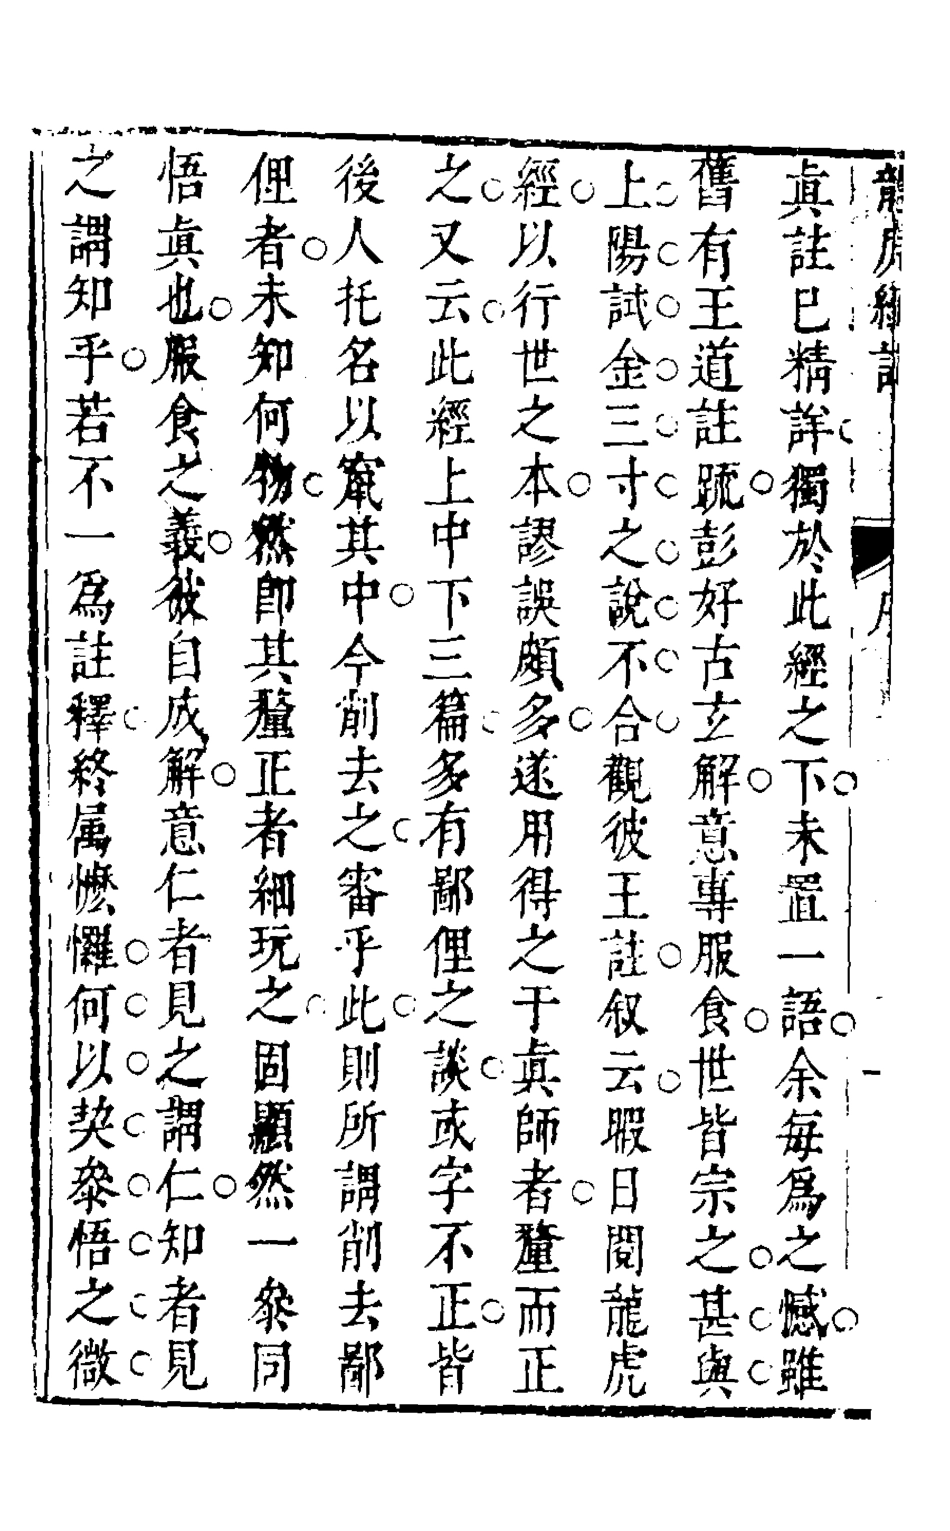 龍虎經註 序 一
眞註巳精詳獨於此經之下未置一語余每爲之憾雖
舊有王道註䟽彭好古玄解意專服食世皆宗之甚與
上陽試金三寸之說不合觀彼王註叙云暇日閱龍虎
經以行世之本謬誤頗多遂用得之于眞師者釐而正
之又云此經上中下三篇多有鄙俚之談或字不正皆
後人托名以窜其中今削去之審乎此則所謂削去鄙
俚者未知何物然卽其釐正者細玩之固顯然一叅同
悟眞也服食之義彼自成解意仁者見之謂仁知者見
之謂知乎若不一爲註釋終属懡㦬何以契叅悟之微